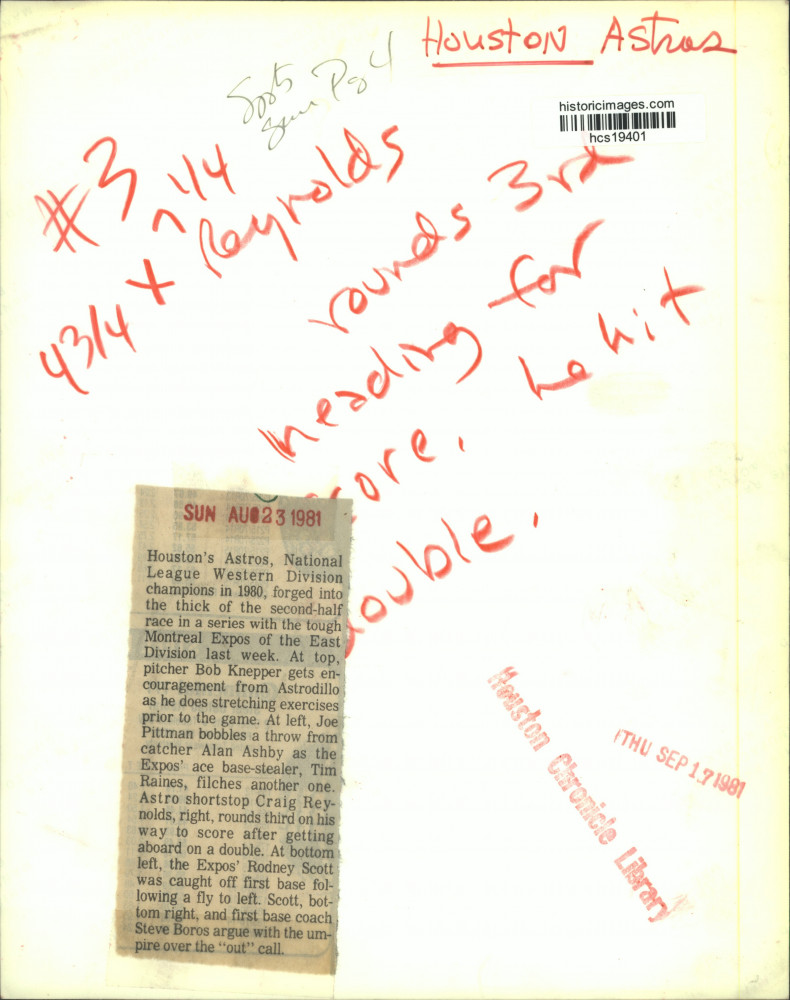 Houston Astros
Pg 4
historicimages.com
hcs19401
#3 1/4
43/4 x Reynolds
rounds 3rd
heading for
core. he hit
ouble.
SUN AUG 23 1981
Houston's Astros, National
League Western Division
champions in 1980, forged into
the thick of the second-half
race in a series with the tough
Montreal Expos of the East
Division last week. At top,
pitcher Bob Knepper gets en-
couragement from Astrodillo
as he does stretching exercises
prior to the game. At left, Joe
Pittman bobbles a throw from
catcher Alan Ashby as the
Expos' ace base-stealer, Tim
Raines, filches another one.
Astro shortstop Craig Rey-
nolds, right, rounds third on his
way to score after getting
aboard on a double. At bottom
left, the Expos' Rodney Scott
was caught off first base fol-
lowing a fly to left. Scott, bot-
tom right, and first base coach
Steve Boros argue with the um-
pire over the "out" call.
THU SEP 17 1981
Houston Chronicle Library